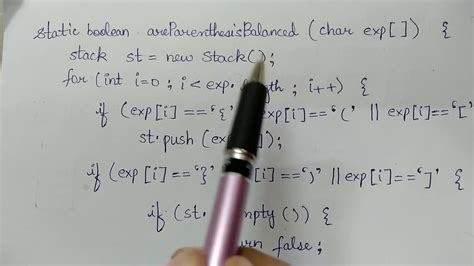 static boolean areParenthesisBalanced (char exp[]) {
stack st = new Stack();
for (int i=0 ; i< exp. length ; i++) {
if (exp[i] =='{' exp[i]=='(' || exp[i]=='['
st.push (ex ]);
if (exp[i] =='}' exp[i]==')' || exp[i]==']' {
if (st. empty ()) {
return false;